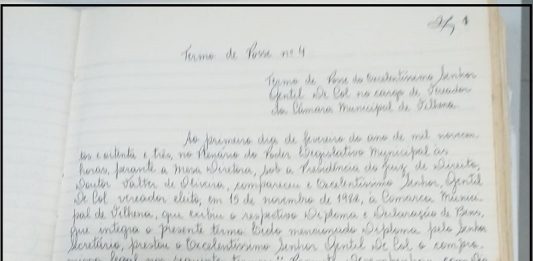 Termo de Posse nº 4
Termo de Posse do Excelentíssimo Senhor
Gentil De Col no cargo de Vereador
da Câmara Municipal de Vilhena.
Ao primeiro dia de fevereiro do ano de mil novecen
tos e oitenta e três, no Plenário do Poder Legislativo Municipal às
horas, perante a Mesa Diretora, sob a Presidência do Juiz de Direito,
Doutor Valter de Oliveira, compareceu o Excelentíssimo Senhor, Gentil
De Col vereador eleito, em 15 de novembro de 1982, à Câmara Munici
pal de Vilhena, que exibiu o respectivo Diploma e Declaração de Bens,
que integra o presente termo. Lido mencionado Diploma pelo Senhor
Secretário, prestou o Excelentíssimo Senhor Gentil De Col o compro